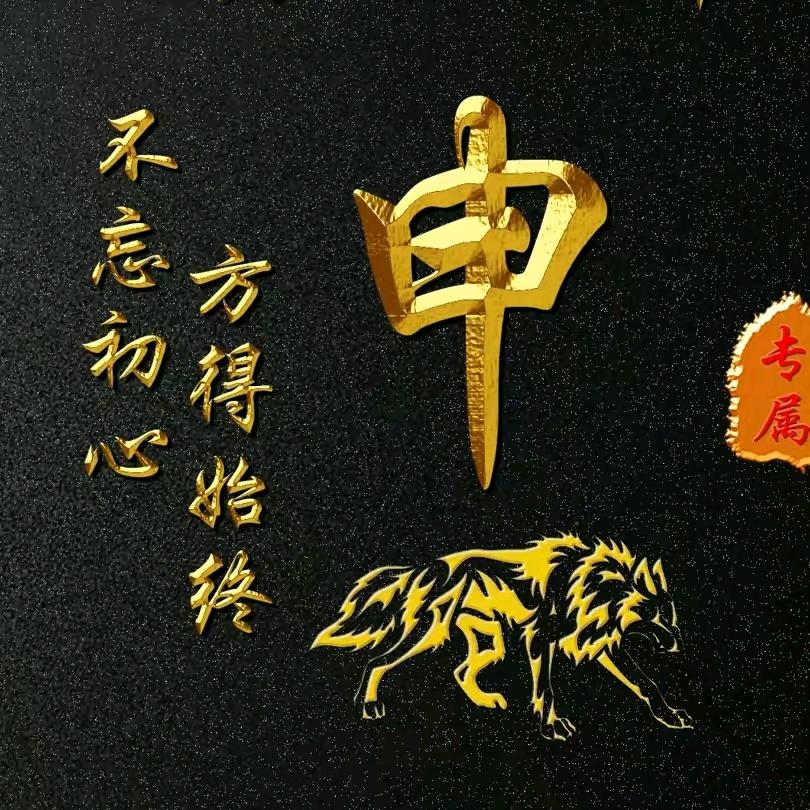 申
不忘初心
方得始终
专属